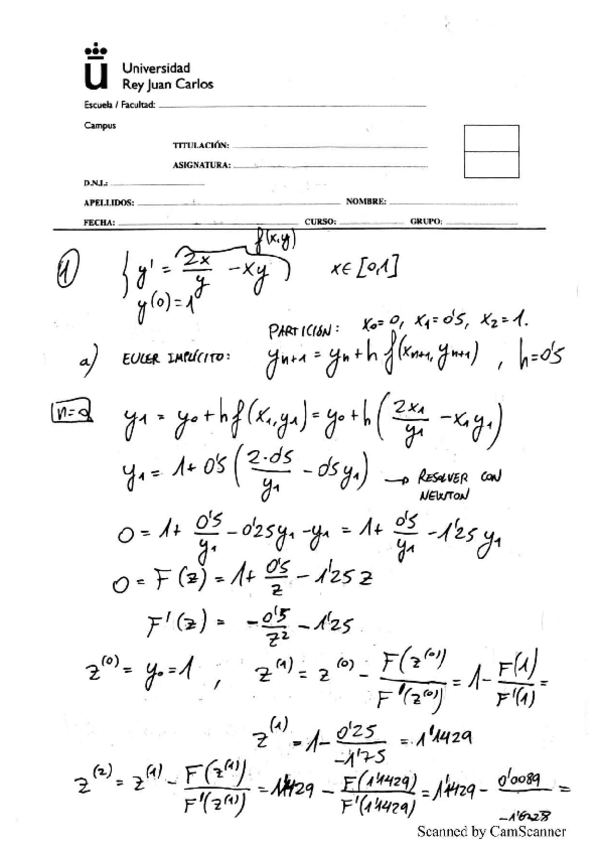 Universidad
Rey Juan Carlos
Escuela / Facultad:
Campus
TITULACIÓN:
ASIGNATURA:
D.N.I.:
APELLIDOS: NOMBRE:
FECHA: CURSO: GRUPO:
f(x,y)
1) { y' = 2x/y - xy ) x∈[0,1]
y(0)=1
PARTICIÓN: x₀=0, x₁=0'5, x₂=1.
a) EULER IMPLÍCITO: yₙ₊₁ = yₙ + h f(xₙ₊₁, yₙ₊₁), h=0'5
n=0 y₁ = y₀ + h f(x₁,y₁) = y₀ + h (2x₁/y₁ - x₁y₁)
y₁ = 1 + 0'5 (2·0'5/y₁ - 0'5y₁) → RESOLVER CON
NEWTON
0 = 1 + 0'5/y₁ - 0'25y₁ - y₁ = 1 + 0'5/y₁ - 1'25y₁
0 = F(z) = 1 + 0'5/z - 1'25z
F'(z) = -0'5/z² - 1'25
z⁽⁰⁾ = y₀ = 1, z⁽¹⁾ = z⁽⁰⁾ - F(z⁽⁰⁾)/F'(z⁽⁰⁾) = 1 - F(1)/F'(1) =
z⁽¹⁾ = 1 - 0'25/-1'75 = 1'1429
z⁽²⁾ = z⁽¹⁾ - F(z⁽¹⁾)/F'(z⁽¹⁾) = 1'1429 - F(1'1429)/F'(1'1429) = 1'1429 - 0'0089/-1'6228 =
Scanned by CamScanner